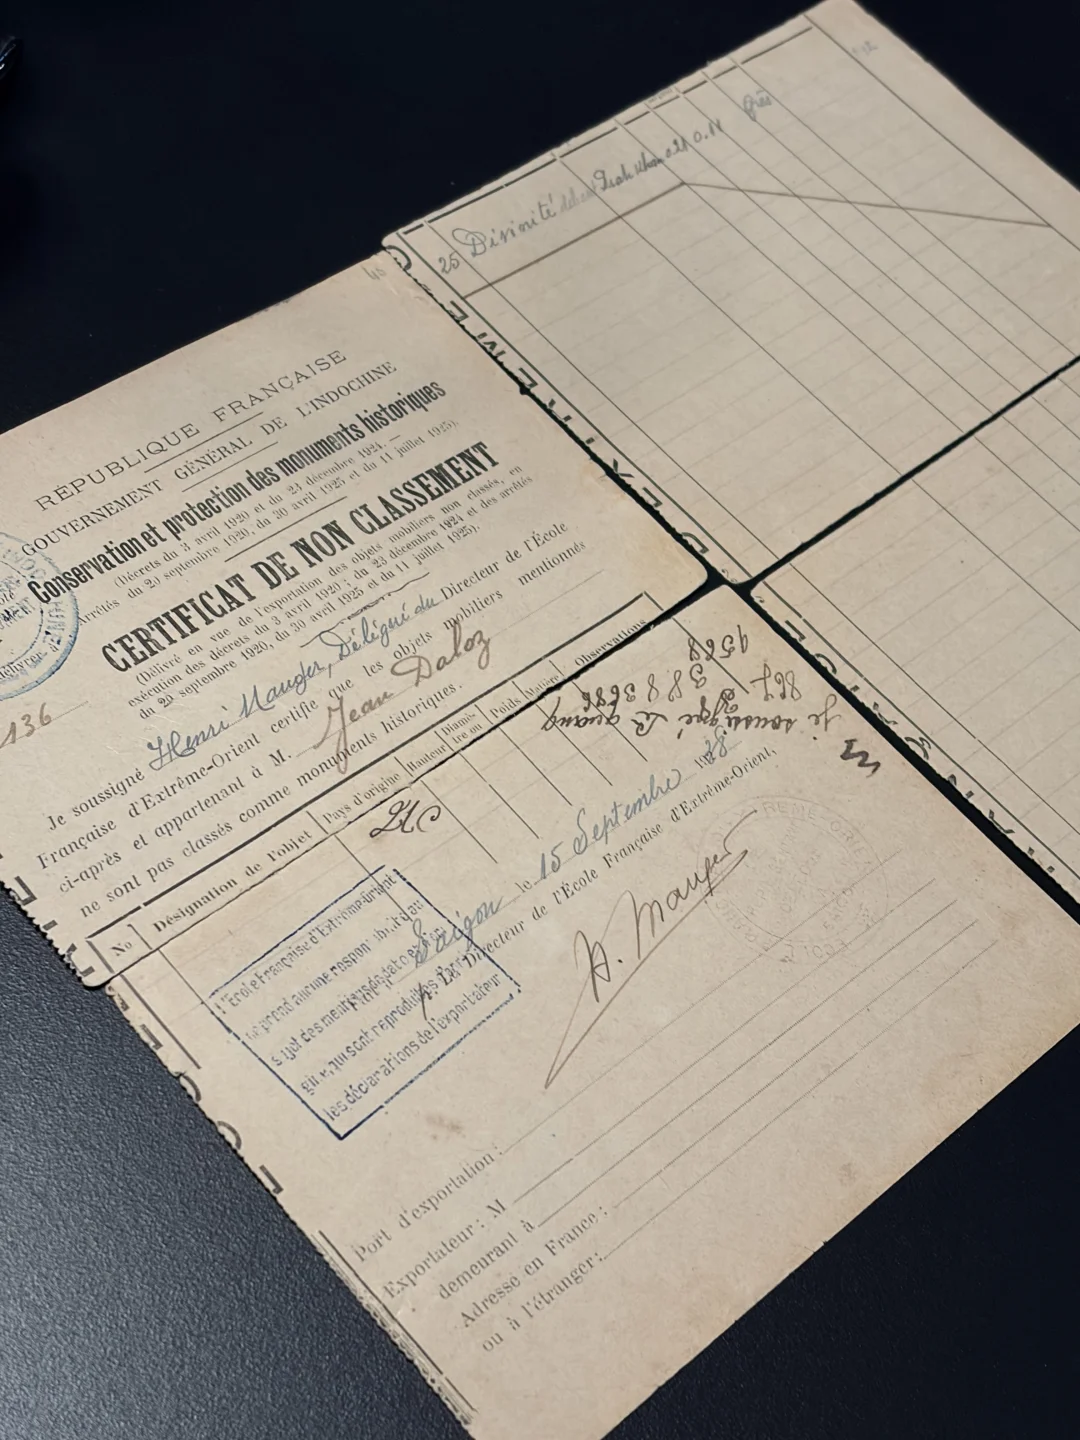 RÉPUBLIQUE FRANÇAISE
GOUVERNEMENT GÉNÉRAL DE L'INDOCHINE
Conservation et protection des monuments historiques
(Décrets du 3 avril 1920 et du 23 décembre 1924. —
Arrêtés du 20 septembre 1920, du 30 avril 1925 et du 11 juillet 1925).
CERTIFICAT DE NON CLASSEMENT
(Délivré en vue de l'exportation des objets mobiliers non classés, en
exécution des décrets du 3 avril 1920; du 23 décembre 1924 et des arrêtés
du 20 septembre 1920, du 30 avril 1925 et du 11 juillet 1925).
136
Je soussigné Henri Mauger, Délégué du Directeur de l'École
Française d'Extrême-Orient certifie que les objets mobiliers mentionnés
ci-après et appartenant à M. Jean Daloz
ne sont pas classés comme monuments historiques.
No Désignation de l'objet Pays d'origine Hauteur Diamètre ou Poids Matière Observations
25 Divinité 0.14 grès
L'École Française d'Extrême-Orient
ne prend aucune responsabilité au
sujet des mentions de date et d'ori-
gine, qui sont reproduites d'après
les déclarations de l'exportateur
Saigon le 15 Septembre 1928
P. Le Directeur de l'École Française d'Extrême-Orient,
H. Mauger
je soussigné
867
3883686
9568
Port d'exportation:
Exportateur: M
demeurant à
Adresse en France:
ou à l'étranger: